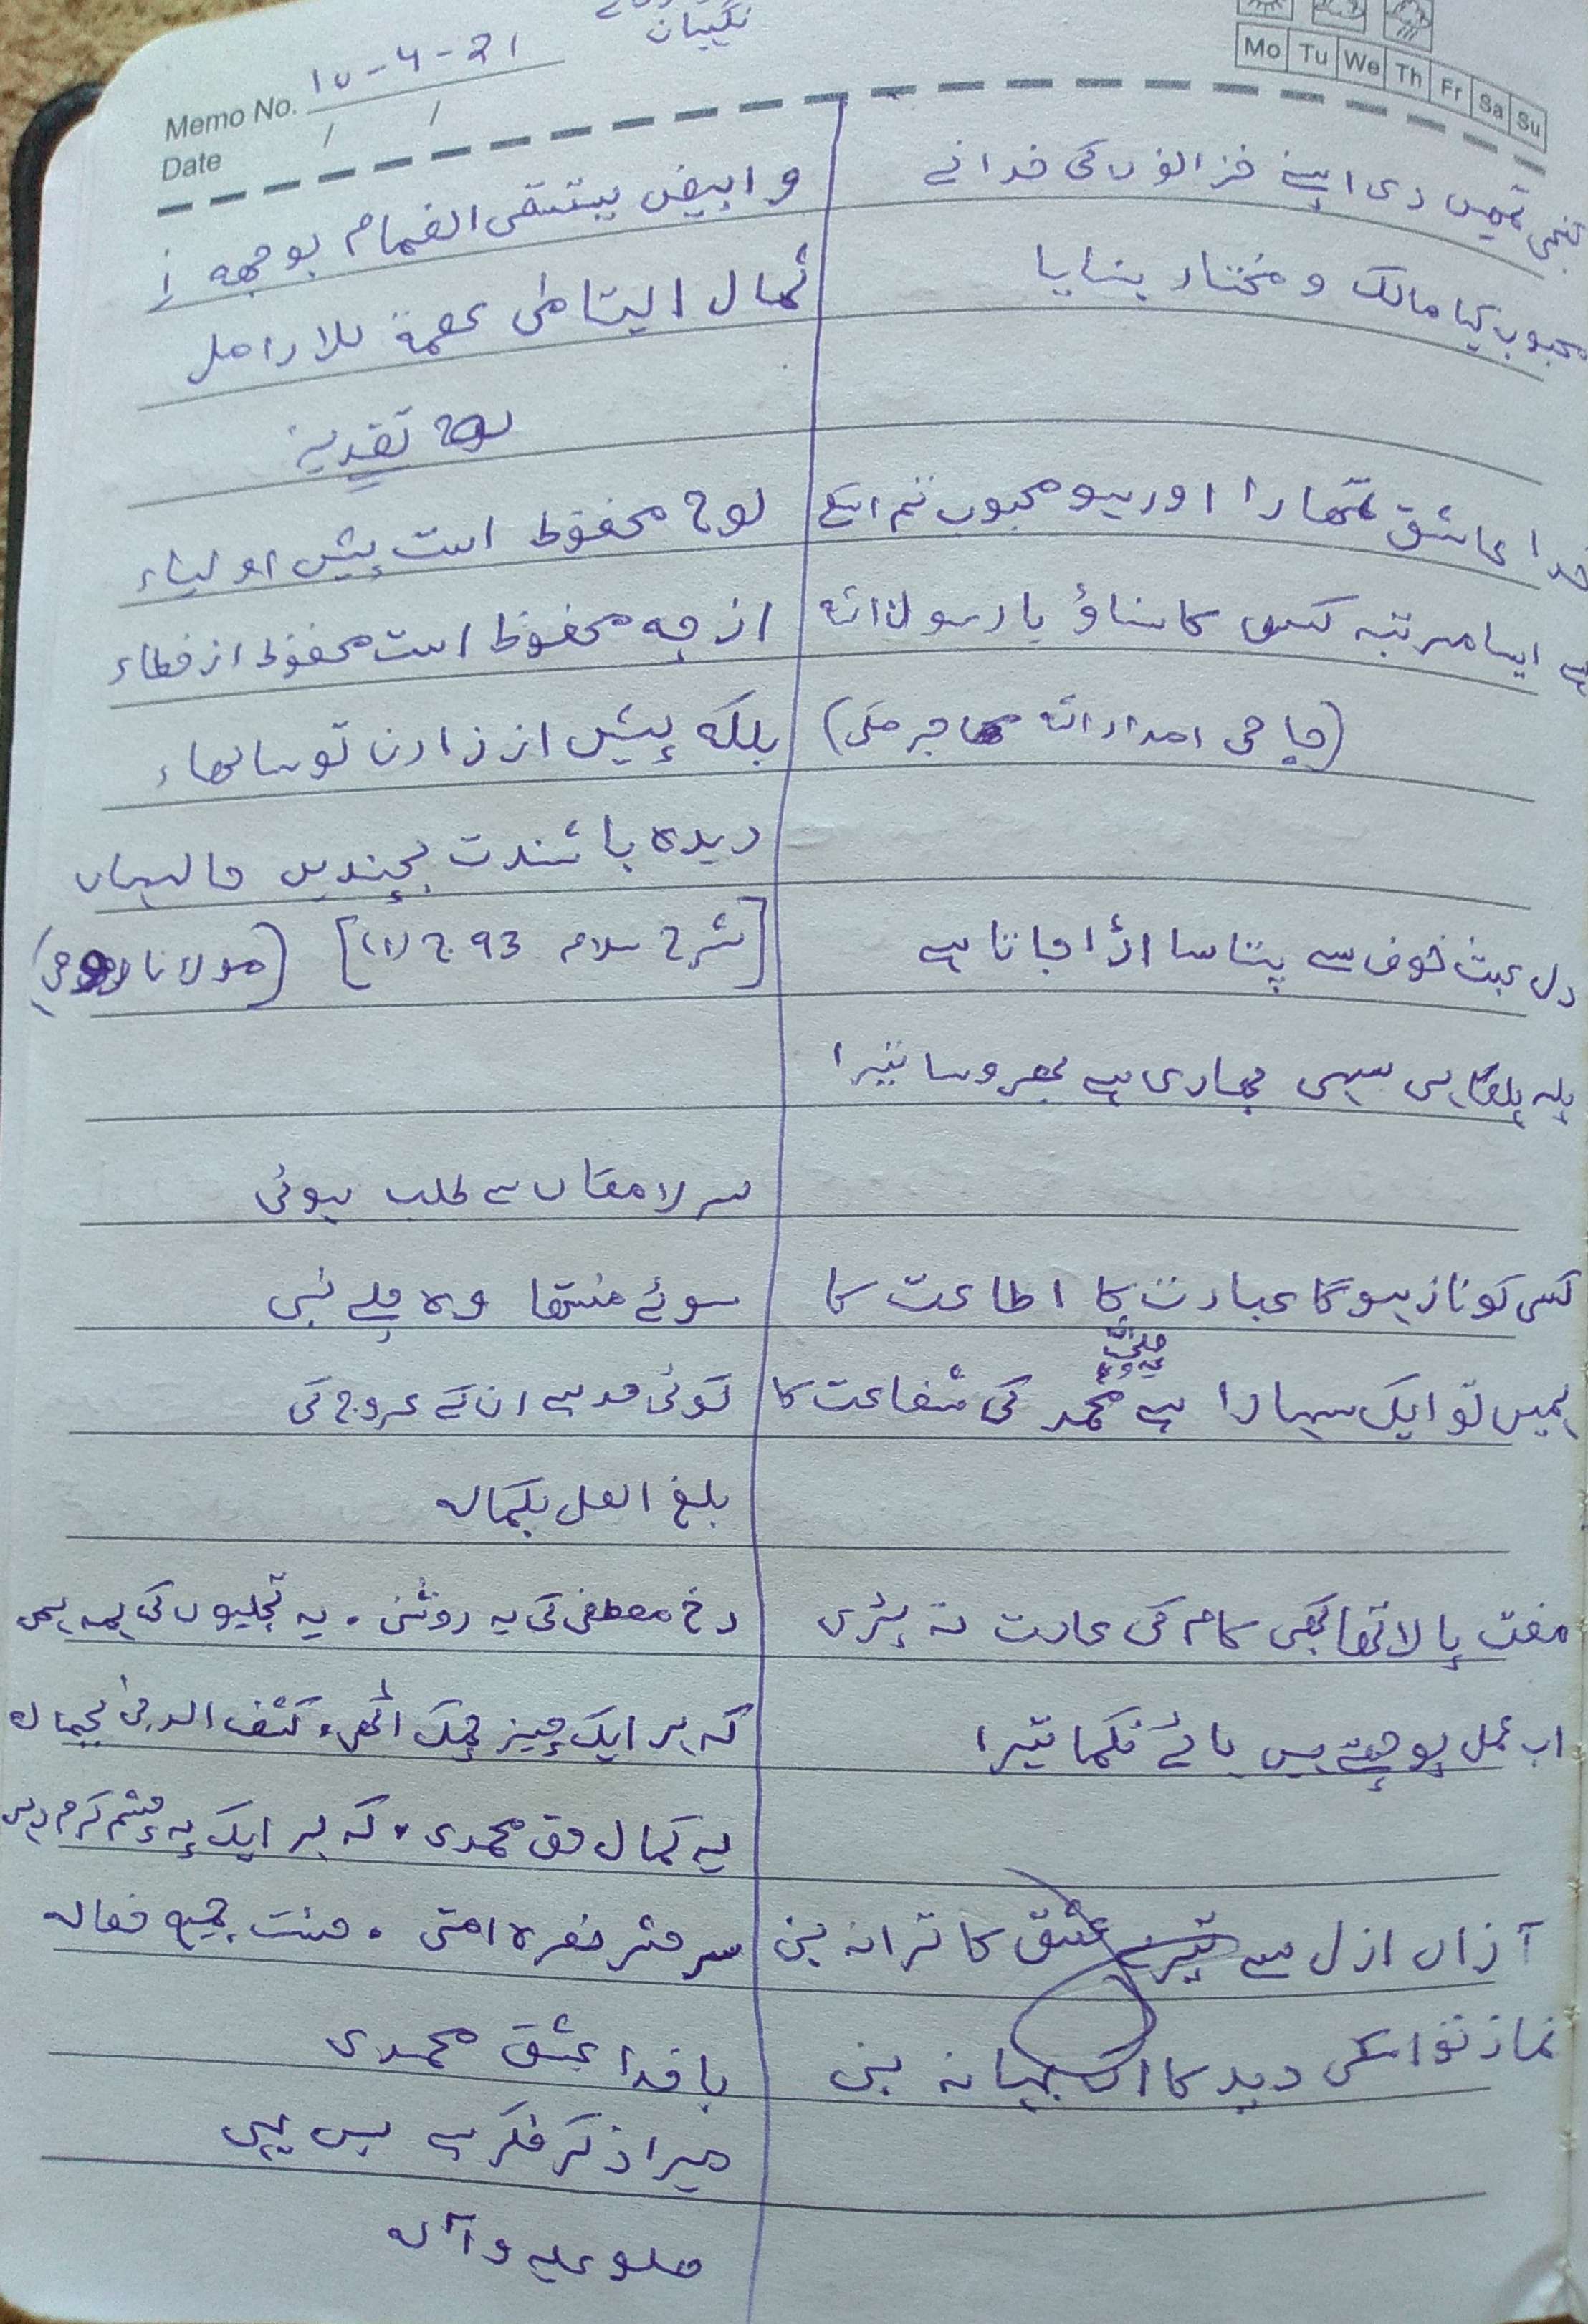 نگہبان
Memo No. 10-4-21
Date / /
Mo Tu We Th Fr Sa Su
کنجی تمہیں دی اپنے خزانوں کی خدا نے
محبوب کیا مالک و مختار بنایا
خدا عاشق تمھارا اور ہو محبوب تم اسکے
ہے ایسا مرتبہ کس کا سناؤ یا رسول اللہ
(حاجی امداد اللہ مھاجر مکی)
دل عبث خوف سے پتا سا اڑا جاتا ہے
پلہ ہلکا ہی سہی بھاری ہے بھروسا تیرا
کسی کو ناز ہوگا عبادت کا اطاعت کا
ہمیں تو ایک سہارا ہے محمد ﷺ کی شفاعت کا
مفت پالا تھا کبھی کام کی عادت نہ پڑی
اب عمل پوچھتے ہیں ہائے نکما تیرا
آذاں ازل سے تیرے عشق کا ترانہ بنی
نماز تو اسکی دید کا اک بہانہ بنی
و ابیض یستقی الغمام بوجھه
ثمال الیتامٰی عصمة للارامل
لوح تقدیر
لوح محفوظ است پیش اولیاء
از چه محفوظ است محفوظ از خطاء
بلکه پیش از زادن تو سالھاء
دیدہ باشندت بچندیں حالہاں
[شرح سلام 93 ج (1)] (مولانا رومی)
سر لامقاں سے طلب ہوئی
سوئے منتھا وہ چلے نبی
کوئی حد ہے ان کے عروج کی
بلغ العلی بکماله
رخ مصطفی کی یہ روشنی ۔ یہ تجلیوں کی ہمہ ہمی
کہ ہر ایک چیز چمک اٹھی، کشف الدجیٰ بجماله
یہ کمال حق محمدی، کہ ہر ایک پہ چشم کرم رہی
سر حشر نعرہ امتی ۔ حسنت جمیع خصاله
باخدا عشق محمدی
میرا ذکر فکر ہے بس یہی
صلو علیہ و آلہ